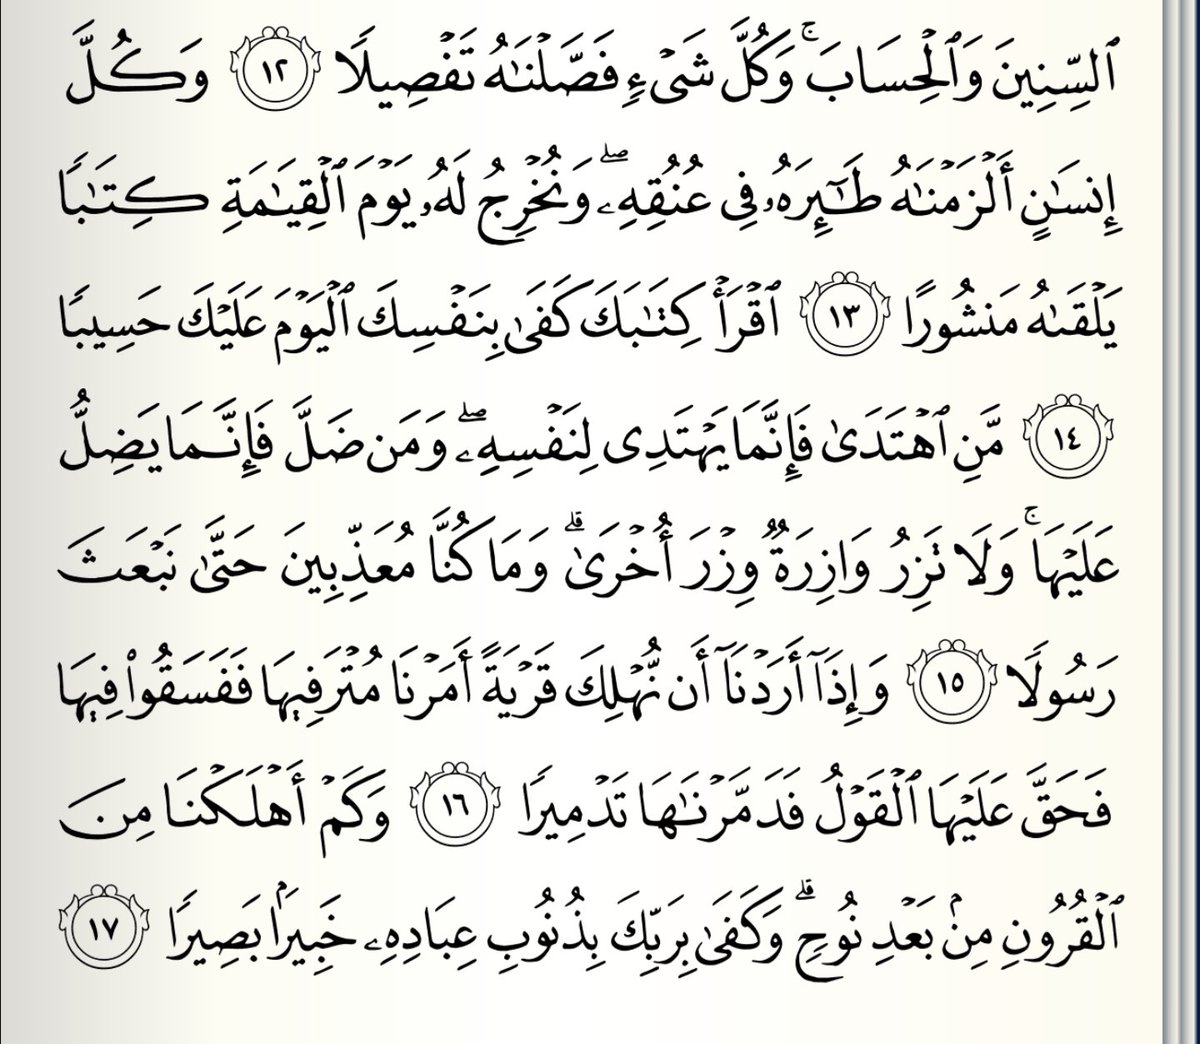 ٱلسِّنِينَ وَٱلْحِسَابَ ۚ وَكُلَّ شَىْءٍ فَصَّلْنَـٰهُ تَفْصِيلًا ١٢ وَكُلَّ
إِنسَـٰنٍ أَلْزَمْنَـٰهُ طَـٰٓئِرَهُۥ فِى عُنُقِهِۦ ۖ وَنُخْرِجُ لَهُۥ يَوْمَ ٱلْقِيَـٰمَةِ كِتَـٰبًا
يَلْقَىٰهُ مَنشُورًا ١٣ ٱقْرَأْ كِتَـٰبَكَ كَفَىٰ بِنَفْسِكَ ٱلْيَوْمَ عَلَيْكَ حَسِيبًا
١٤ مَّنِ ٱهْتَدَىٰ فَإِنَّمَا يَهْتَدِى لِنَفْسِهِۦ ۖ وَمَن ضَلَّ فَإِنَّمَا يَضِلُّ
عَلَيْهَا ۚ وَلَا تَزِرُ وَازِرَةٌ وِزْرَ أُخْرَىٰ ۗ وَمَا كُنَّا مُعَذِّبِينَ حَتَّىٰ نَبْعَثَ
رَسُولًا ١٥ وَإِذَآ أَرَدْنَآ أَن نُّهْلِكَ قَرْيَةً أَمَرْنَا مُتْرَفِيهَا فَفَسَقُوا۟ فِيهَا
فَحَقَّ عَلَيْهَا ٱلْقَوْلُ فَدَمَّرْنَـٰهَا تَدْمِيرًا ١٦ وَكَمْ أَهْلَكْنَا مِنَ
ٱلْقُرُونِ مِنۢ بَعْدِ نُوحٍ ۗ وَكَفَىٰ بِرَبِّكَ بِذُنُوبِ عِبَادِهِۦ خَبِيرًۢا بَصِيرًا ١٧